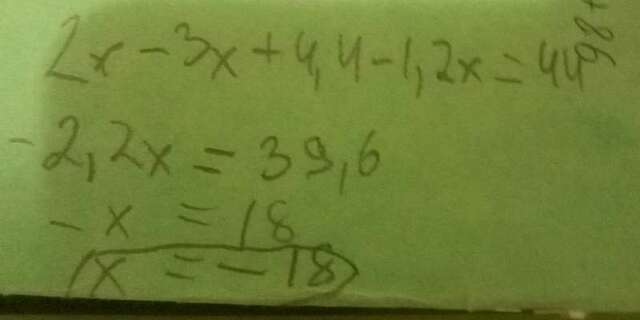 2x-3x+4,4-1,2x=44
-2,2x=39,6
-x=18
x=-18